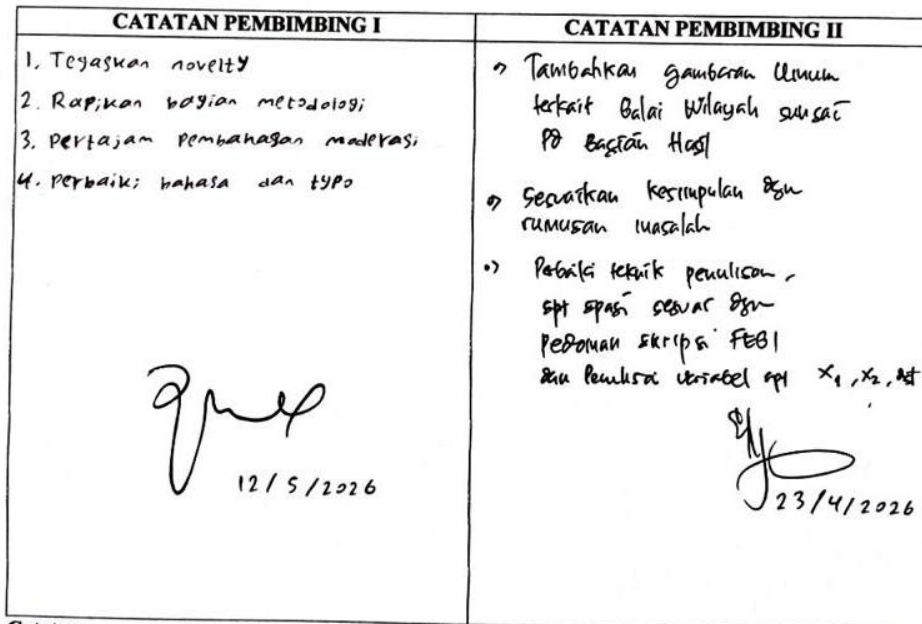 CATATAN PEMBIMBING I
1. Tegaskan novelty
2. Rapikan bagian metodologi
3. Pertajam pembahasan moderasi
4. Perbaiki bahasa dan typo
12/5/2026
CATATAN PEMBIMBING II
Tambahkan gambaran Umum
terkait Balai Wilayah sungai
Pd Bagian Hasil
Sesuaikan kesimpulan dgn
rumusan masalah
Perbaiki teknik penulisan,
spt spasi sesuai dgn
pedoman skripsi FEBI
dan Penulisan variabel spt X1, X2, dst
23/4/2026